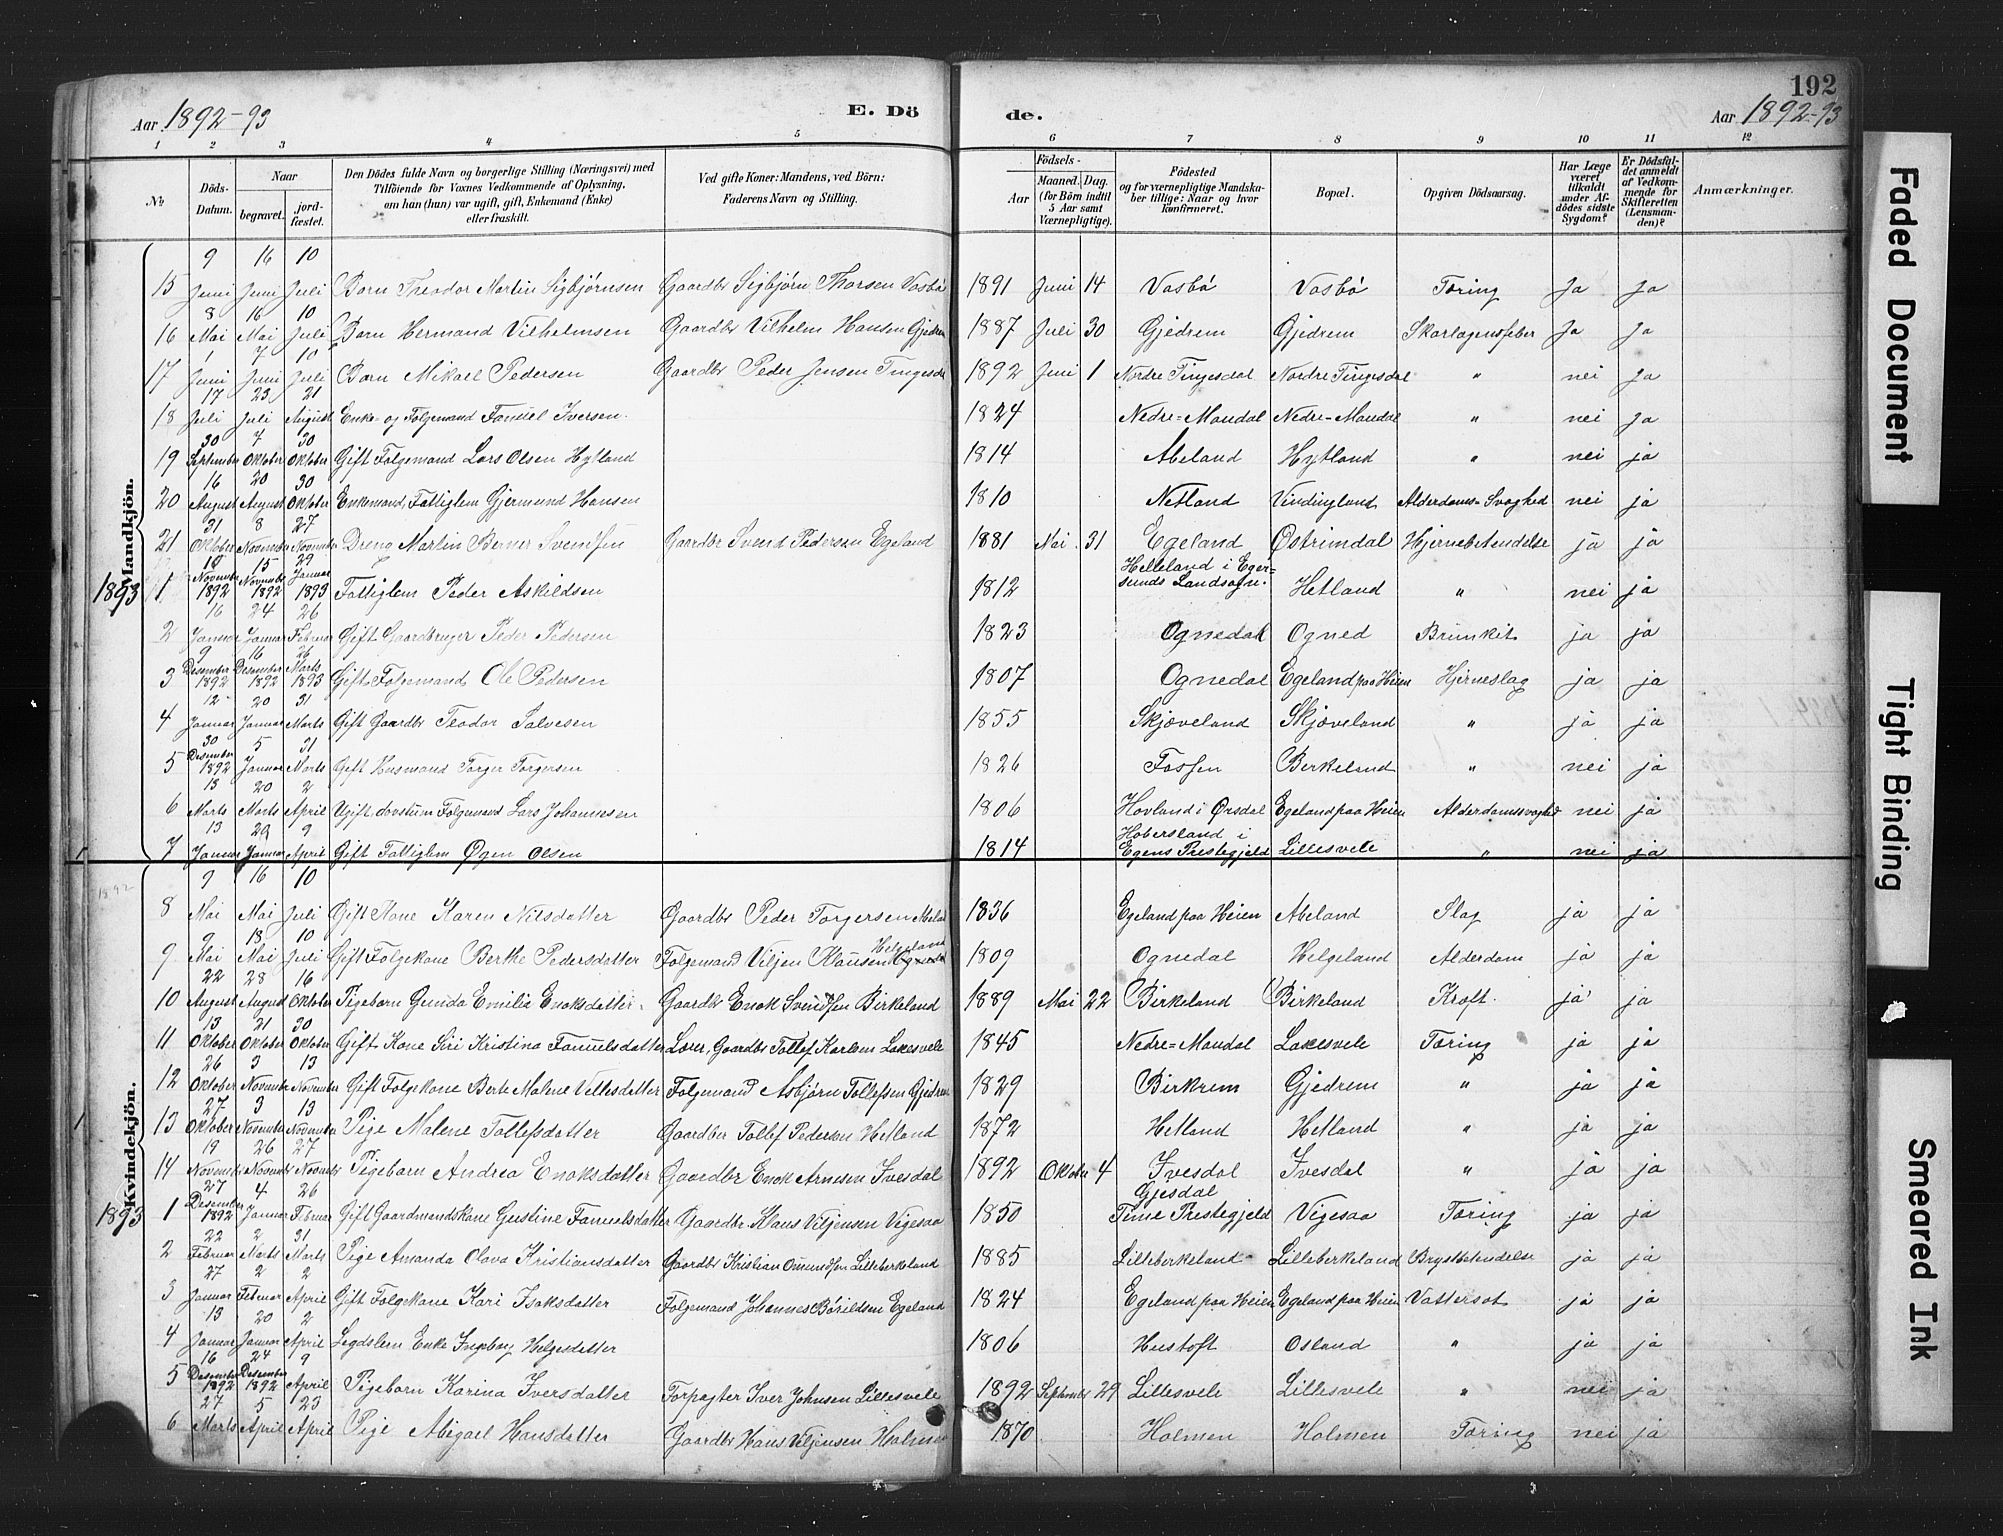 192
Aar 1892-93 E. Dö
de. Aar 1892-93
1 2 3 4 5 6 7 8 9 10 11 12
№ Döds-Datum. Naar begravet. jord-fæstet. Den Dödes fulde Navn og borgerlige Stilling (Næringsvei) med Tilföiende för Voxnes Vedkommende af Oplysning, om han (hun) var ugift, gift, Enkemand (Enke) eller fraskilt. Ved gifte Koner: Mandens, ved Börn: Faderens Navn og Stilling. Födsels- Aar Maaned. Dag. (for Börn indtil 5 Aar samt Værnepligtige). Födested og for værnepligtige Mandska-ber tillige: Naar og hvor konfirmeret. Bopæl. Opgiven Dödsaarsag. Har Læge været tilkaldt under Af-dödes sidste Sygdom? Er Dödsfal-det anmeldt af Vedkom-mende for Skifteretten (Lensman-den)? Anmærkninger.
Mandkjön.
15 9 Juni 16 Juni 10 Juli Barn Theodor Martin Sigbjørnsen Gaardbr Sigbjørn Thorsen Vasbø 1891 Juni 14 Vasbø Vasbø Tæring Ja Ja
16 8 Mai 16 Mai 10 Juli Barn Hermand Vilhelmsen Gaardbr Vilhelm Hansen Gjedrem 1887 Juli 30 Gjedrem Gjedrem Skarlagensfeber Ja Ja
17 1 Juni 7 Juni 10 Juli Barn Mikael Pedersen Gaardbr Peder Jensen Tingesda 1892 Juni 1 Nordre Tingesdal Nordre Tingesdal " nei Ja
18 17 Juli 23 Juli 21 August Enke- og Folgemand Fanuel Iversen. 1824 Nedre=Maudal Nedre-Maudal " nei Ja
19 30 September 7 Oktober 30 Oktober Gift Folgemand Lars Olsen Hytland 1814 Abeland Hytland " nei ja
20 16 August 20 August 30 Oktober Enkemand, Fattiglem Gjermund Hansen 1810 Netland Vindingland Alderdoms-Svaghed nei ja
21 31 Oktober 8 November 27 November Dreng Martin Berner Svendsen Gaardbr Svend Pedersen Egeland 1881 Mai 31 Egeland Østrimdal Hjernebetendelse ja ja
1893 1 18 November 1892 15 November 1892 29 Januar 1893 Fattiglem Peder Askildsen 1812 Helleland i Eger-sunds Landsogn. Hetland " nei ja
2 16 Januar 24 Januar 26 Februar Gift Gaardbruger Peder Pedersen 1823 Ognedal Ogned Brunkit ja ja
3 9 Desember 1892 16 Desember 1892 26 Marts 1893 Gift Folgemand Ole Pedersen 1807 Ognedal Egeland paa Heien Hjerneslag ja ja
4 12 Januar 20 Januar 31 Marts Gift Gaardbr Teodor Salvesen 1855 Skjæveland Skjæveland " ja ja
5 30 Desember 1892 5 Januar 31 Marts Gift Husmand Torger Torgersen 1826 Fossen Berkeland " nei ja
6 13 Marts 20 Marts 2 April Ugift døvstum Folgemand Lars Johannesen 1806 Hovland i Ørsdal Egeland paa Heien Alderdomssvaghed nei ja
7 13 Januar 29 Januar 9 April Gift Fattiglem Øgen Olsen 1814 Egens Prestegjeld Lillesvele " nei ja
Kvindekjön.
1892
8 9 Mai 16 Mai 10 Juli Gift Kone Karen Nilsdatter Gaardbr Peder Torgersen 1836 Egeland paa Heien Abeland Slag ja ja
9 9 Mai 13 Mai 10 Juli Gift Folgekone Berthe Pedersdatter Folgemand Viljen Klausen Helgeland 1809 Ognedal Helgeland Alderdom ja ja
10 22 August 28 August 16 Oktober Pigebarn Gunda Emilia Enoksdatter Gaardbr Enok Svendsen Birkeland 1889 Mai 22 Birkeland Birkeland Kræft. ja ja
11 13 Oktober 21 Oktober 30 Oktober Gift Kone Siri Kristina Fanuelsdatter Lærer, Gaardbr Tollef Karlsen Laksevele 1845 Nedre=Maudal Laksevele Tæring ja ja
12 26 Oktober 3 November 13 November Gift Folgekone Berte Malene Vellesdatter Folgemand Asbjørn Tollefsen Gjedrem 1829 Birkrem Gjedrem " ja ja
13 27 Oktober 3 November 13 November Pige Malene Tollefsdatter Gaardber Tollef Pedersen Hetland 1872 Hetland Hetland " ja ja
14 19 November 26 November 27 November Pigebarn Andrea Enoksdatter Gaardbr Enok Arnesen Ivesdal 1892 Oktober 4 Ivesdal Ivesdal " ja ja
1893 1 27 Desember 1892 4 Januar 26 Februar Gift Gaardmandskone Gustine Fanuelsdatter Gaardbr Klaus Viljensen Vigesaa 1850 Gjesdal Time Prestegjeld Vigesaa Tæring ja ja
2 22 Februar 2 Marts 31 Marts Pige Amanda Olava Kristiansdatter Gaardbr Kristian Omundsen Lilleberkeland 1885 Lilleberkeland Lilleberkeland Brystbetendelse ja ja
3 27 Januar 2 Februar 2 April Gift Folgekone Kari Isaksdatter Folgemand Johannes Børildsen Egeland 1824 Egeland paa Heien Egeland paa Heien Vattersot ja ja
4 13 Januar 20 Januar 2 April Legdslem Enke Ingeborg Helgesdatter 1806 Hustoft Osland " ja ja
5 16 Desember 1892 24 Desember 1892 9 April Pigebarn Karina Iversdatter Forpagter Iver Johnsen Lillesvele 1892 September 29 Lillesvele Lillesvele " nei ja
6 27 Marts 5 April 23 April Pige Abigael Hansdatter Gaardbr Hans Viljensen Holmen 1870 Holmen Holmen Tæring nei ja
Faded Document
Tight Binding
Smeared Ink